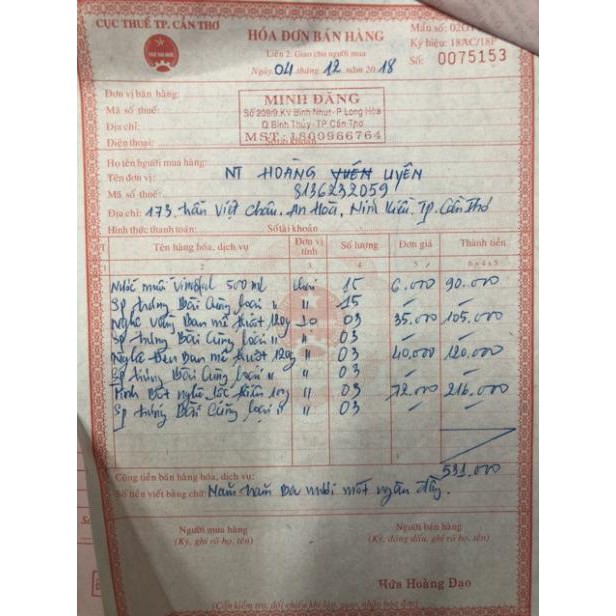 CỤC THUẾ TP. CẦN THƠ
HÓA ĐƠN BÁN HÀNG
Liên 2: Giao cho người mua
Ngày 04 tháng 12 năm 2018
Mẫu số:
Ký hiệu: 18AC/18P
Số: 0075153
Đơn vị bán hàng:
Mã số thuế:
Địa chỉ:
Điện thoại:
MINH ĐĂNG
Số 209/9.KV Bình Nhựt - P Long Hòa
Q Bình Thủy - TP Cần Thơ
MST: 1800966764
Họ tên người mua hàng:
Tên đơn vị: NT HOÀNG UYÊN
Mã số thuế: 8136232059
Địa chỉ: 173, Trần Việt Châu, An Hoà, Ninh Kiều, Tp. Cần Thơ
Hình thức thanh toán: Số tài khoản
Tên hàng hóa, dịch vụ Đơn vị tính Số lượng Đơn giá Thành tiền
2 3 4 5 6=4x5
Nước muối Vimeful 500ml chai 15 6.000 90.000
Sp trưng Bày Cùng loại " " 15 – –
Nghệ vàng Ban mê thuột 120g 03 35.000 105.000
Sp trưng Bày Cùng loại " " 03 – –
Nghệ đen Ban mê thuột 120g " 03 40.000 120.000
Sp trưng Bày Cùng loại " " 03 – –
Tinh Bột nghệ " 03 72.000 216.000
Sp trưng Bày Cùng loại " " 03 – –
531.000
Cộng tiền bán hàng hóa, dịch vụ:
Số tiền viết bằng chữ: Năm trăm Ba mươi mốt ngàn đồng.
Người mua hàng
(Ký, ghi rõ họ, tên)
Người bán hàng
(Ký, đóng dấu, ghi rõ họ, tên)
Hứa Hoàng Đạo
(Cần kiểm tra, đối chiếu khi lập, giao, nhận hóa đơn)